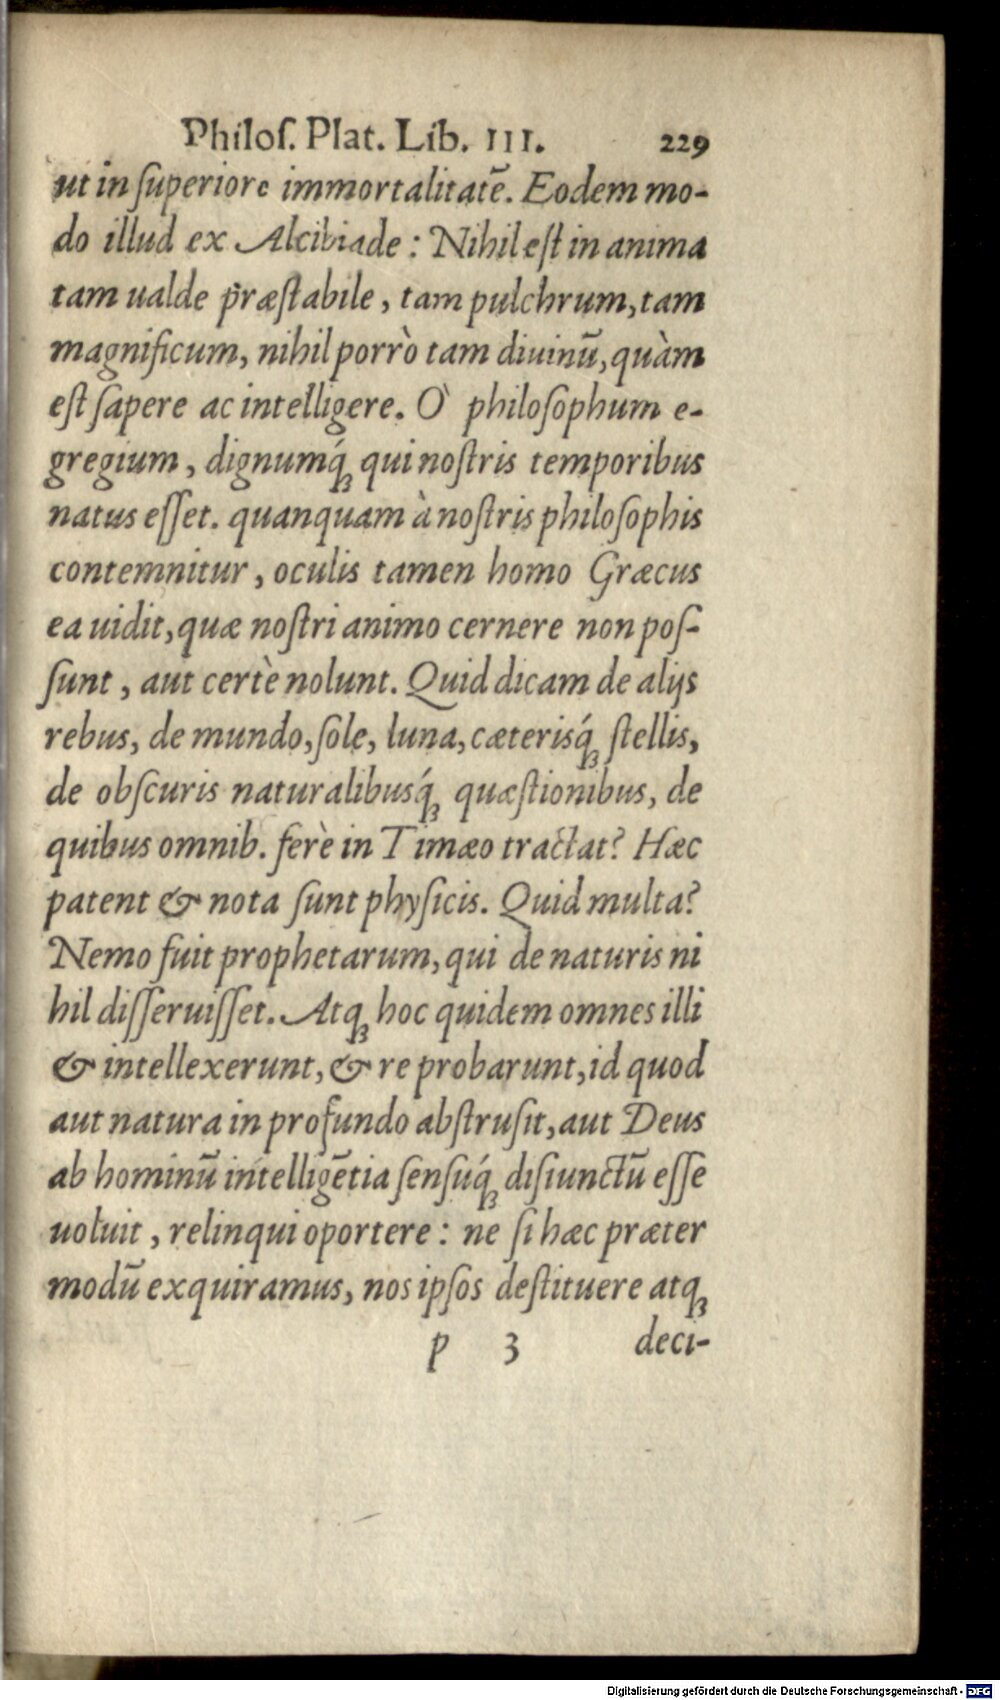 Philoſ. Plat. Lib. III. 229
ut in ſuperiore immortalitatē. Eodem mo-
do illud ex Alcibiade : Nihil eſt in anima
tam ualde præſtabile, tam pulchrum, tam
magnificum, nihil porrò tam diuinū, quàm
eſt ſapere ac intelligere. Ò philoſophum e-
gregium, dignumq́ꝫ qui noſtris temporibus
natus eſſet. quanquam à noſtris philoſophis
contemnitur, oculis tamen homo Græcus
ea uidit, quæ noſtri animo cernere non poſ-
ſunt, aut certè nolunt. Quid dicam de alijs
rebus, de mundo, ſole, luna, cæterisq́ꝫ ſtellis,
de obſcuris naturalibusq́ꝫ quæſtionibus, de
quibus omnib. ferè in Timæo tractat? Hæc
patent & nota ſunt phyſicis. Quid multa?
Nemo fuit prophetarum, qui de naturis ni
hil diſſeruiſſet. Atqꝫ hoc quidem omnes illi
& intellexerunt, & re probarunt, id quod
aut natura in profundo abſtruſit, aut Deus
ab hominū intelligētia ſenſuq́ꝫ diſiunctū eſſe
uoluit, relinqui oportere : ne ſi hæc præter
modū exquiramus, nos ipſos deſtituere atqꝫ
p 3 deci-
Digitalisierung gefördert durch die Deutsche Forschungsgemeinschaft - DFG